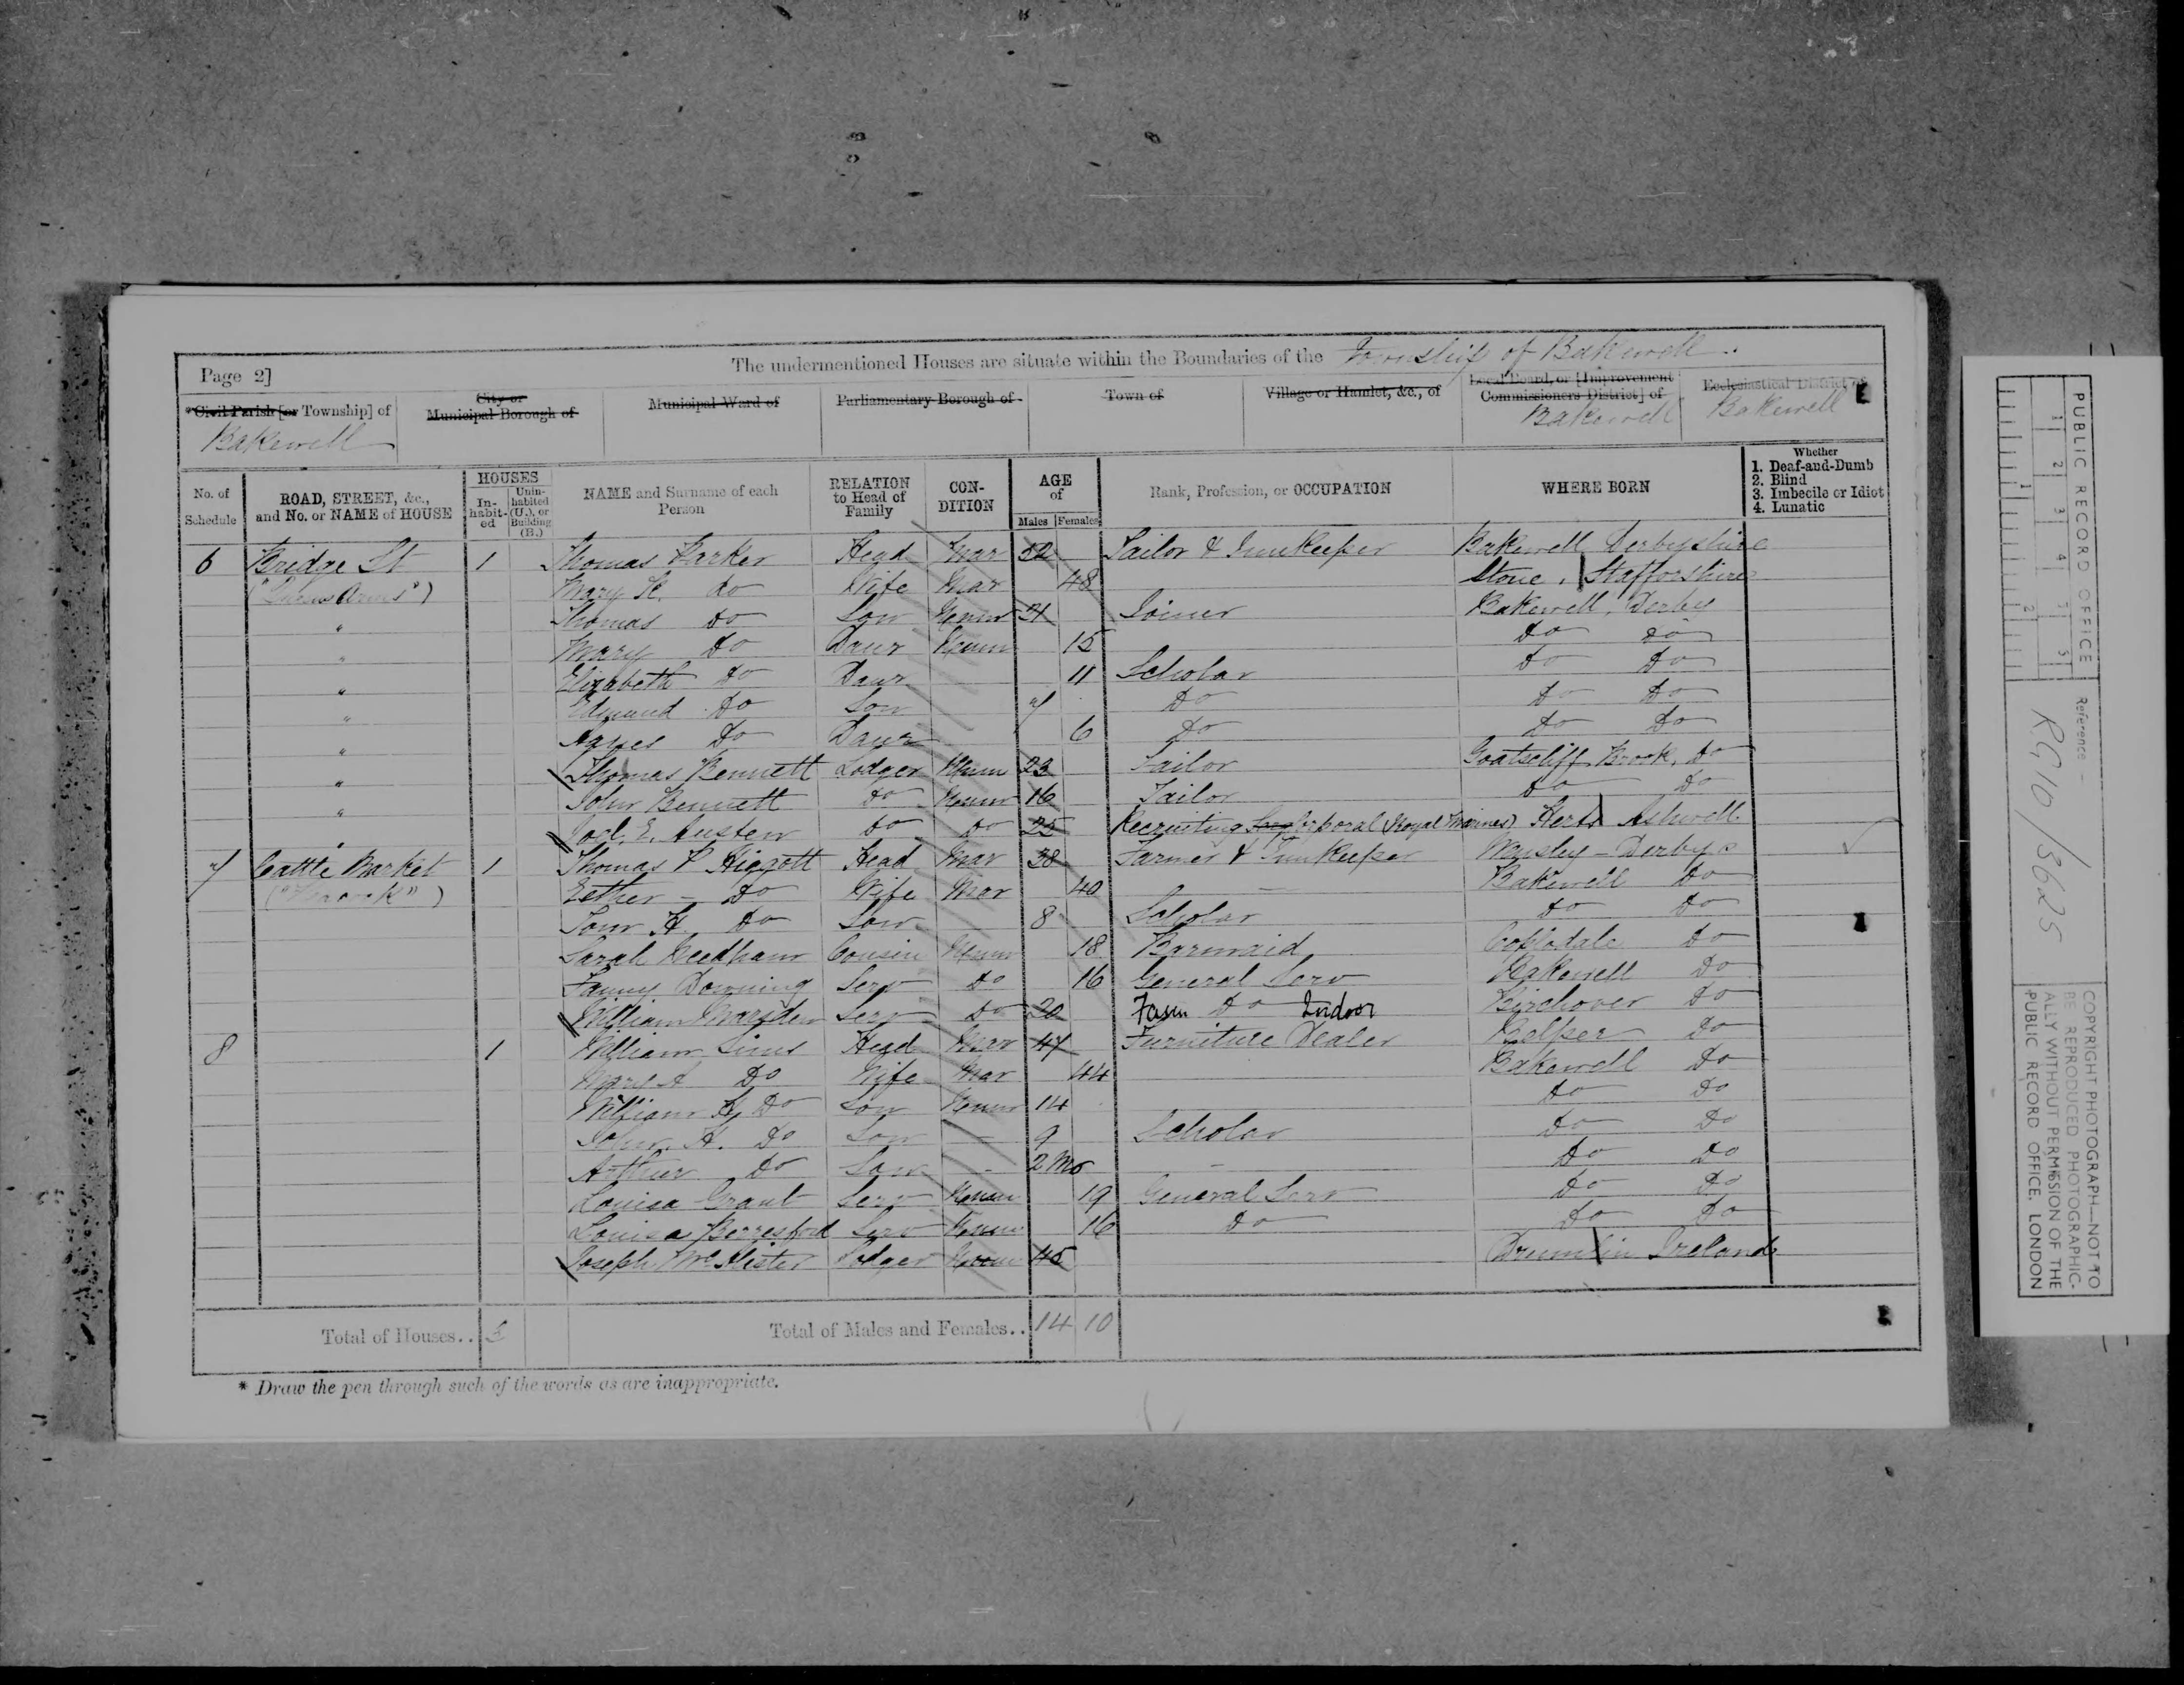 The undermentioned Houses are situate within the Boundaries of the Township of Bakewell.
Page 2]
*Civil Parish [or Township] of Bakewell
City or Municipal Borough of
Municipal Ward of
Parliamentary Borough of
Town of
Village or Hamlet, &c., of
Local Board, or [Improvement Commissioners District] of Bakewell
Ecclesiastical District of Bakewell
No. of Schedule
ROAD, STREET, &c., and No. or NAME of HOUSE
HOUSES
In-habit-ed
Unin-habited (U.), or Building (B.)
NAME and Surname of each Person
RELATION to Head of Family
CON-DITION
AGE of
Males Females
Rank, Profession, or OCCUPATION
WHERE BORN
Whether
1. Deaf-and-Dumb
2. Blind
3. Imbecile or Idiot
4. Lunatic
6 Bridge St 1 Thomas Parker Head Mar 52 Tailor & Innkeeper Bakewell Derbyshire
("Queens Arms") Mary do Wife Mar 48 Stone, Staffordshire
" Thomas Do Son Unm 21 Joiner Bakewell, Derby
" Mary Do Daur Unm 15 Do Do
" Elizabeth Do Daur 11 Scholar Do Do
" Edmund Do Son 7 Do Do Do
" Agnes Do Daur 6 Do Do Do
" Thomas Bennett Lodger Unm 23 Tailor Goatscliff Brook, Do
" John Bennett Do Unm 16 Tailor Do Do
E. Austen Do Do 25 Recruiting Corporal (Royal Marines) Herts Ashwell
7 Cattle Market 1 Thomas P Higgott Head Mar 38 Farmer & Innkeeper Derbys
("Peacock") Esther - Do Wife Mar 40 Bakewell Do
Tom H. Do Son 8 Scholar Do Do
Sarah Needham Cousin Unm 18 Barmaid Do
Fanny Downing Serv Do 16 General Serv Bakewell Do
William Marsden Serv Do 20 Farm Do Indoor Birchover Do
8 1 William Sims Head Mar 47 Furniture Dealer Belper Do
Mary A Do Wife Mar 44 Bakewell Do
William Hy Do Son Unm 14 Do Do
John H. Do Son - 9 Scholar Do Do
Arthur Do Son - 2 Mo - Do Do
Louisa Grant Serv Unm 19 General Serv Do Do
Louisa Berresford Serv Unm 16 Do Do Do
Joseph Lodger Unm 45 Ireland
Total of Houses.. 3
Total of Males and Females.. 14 10
* Draw the pen through such of the words as are inappropriate.
PUBLIC RECORD OFFICE
Reference —
RG10/3625
COPYRIGHT PHOTOGRAPH—NOT TO
BE REPRODUCED PHOTOGRAPHIC-
ALLY WITHOUT PERMISSION OF THE
PUBLIC RECORD OFFICE, LONDON